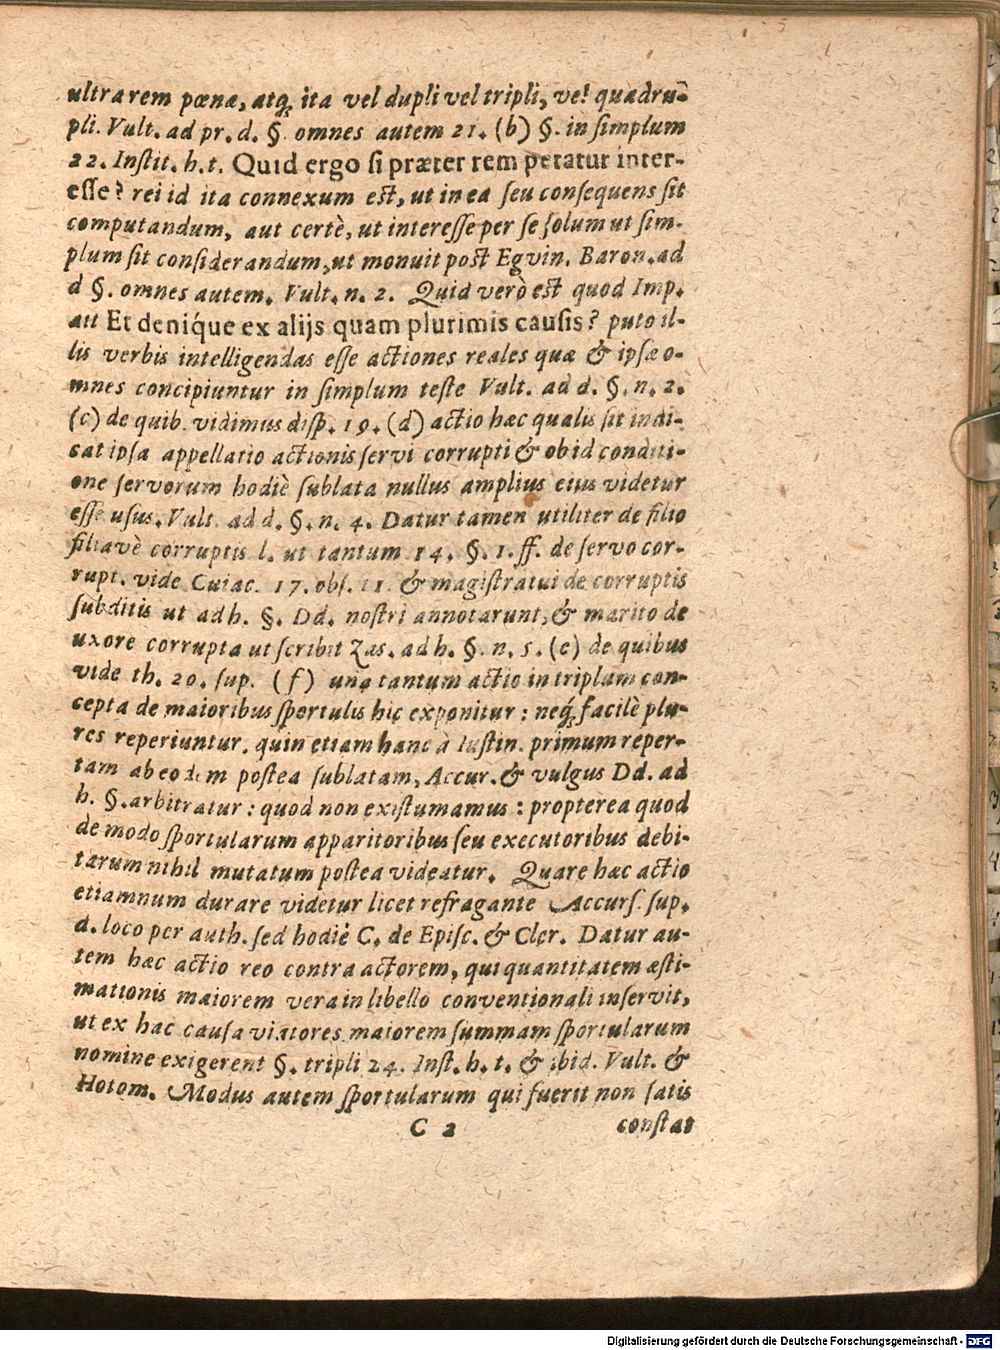 ultra rem pœnæ, atq́; ita vel dupli vel tripli, vel quadru-
pli. Vult. ad pr. d. §. omnes autem 21. (b) §. in ſimplum
22. Inſtit. h. t. Quid ergo ſi præter rem petatur inter-
eſſe? rei id ita connexum eſt, ut in ea ſeu conſequens ſit
computandum, aut certè, ut intereſſe per ſe ſolum ut ſim-
plum ſit conſiderandum, ut monuit poſt Egvin. Baron. ad
d §. omnes autem. Vult. n. 2. Quid verò eſt quod Imp.
ait Et deniq́ue ex alijs quam plurimis cauſis? puto il-
lis verbis intelligendas eſſe actiones reales quæ & ipſæ o-
mnes concipiuntur in ſimplum teſte Vult. ad d. §. n. 2.
(c) de quib. vidimus diſp. 19. (d) actio hæc qualis ſit indi-
cat ipſa appellatio actionis ſervi corrupti & ob id conditi-
one ſervorum hodiè ſublata nullus amplius ejus videtur
eſſe uſus. Vult. ad d. §. n. 4. Datur tamen utiliter de filio
filiavè corruptis l. ut tantum 14. §. 1. ff. de ſervo cor-
rupt. vide Cuiac. 17. obſ. 11. & magiſtratui de corruptis
ſubditis ut ad h. §. Dd. noſtri annotarunt, & marito de
uxore corrupta ut ſcribit Zas. ad h. §. n. 5. (e) de quibus
vide th. 20. ſup. (f) una tantum actio in triplum con-
cepta de maioribus ſportulis hic exponitur: neq́; facilè plu-
res reperiuntur. quin etiam hanc à Iuſtin. primum reper-
tam ab eodem poſtea ſublatam, Accur. & vulgus Dd. ad
h. §. arbitratur: quod non exiſtumamus: propterea quod
de modo ſportularum apparitoribus ſeu executoribus debi-
tarum nihil mutatum poſtea videatur. Quare hæc actio
etiamnum durare videtur licet refragante Accurſ. ſup.
d. loco per auth. ſed hodiè C. de Epiſc. & Cler. Datur au-
tem hæc actio reo contra actorem, qui quantitatem æſti-
mationis maiorem vera in libello conventionali inſervit,
ut ex hac cauſa viatores maiorem ſummam ſportularum
nomine exigerent §. tripli 24. Inſt. h. t. & ibid. Vult. &
Hotom. Modus autem ſportularum qui fuerit non ſatis
C 2 conſtat
Digitalisierung gefördert durch die Deutsche Forschungsgemeinschaft - DFG